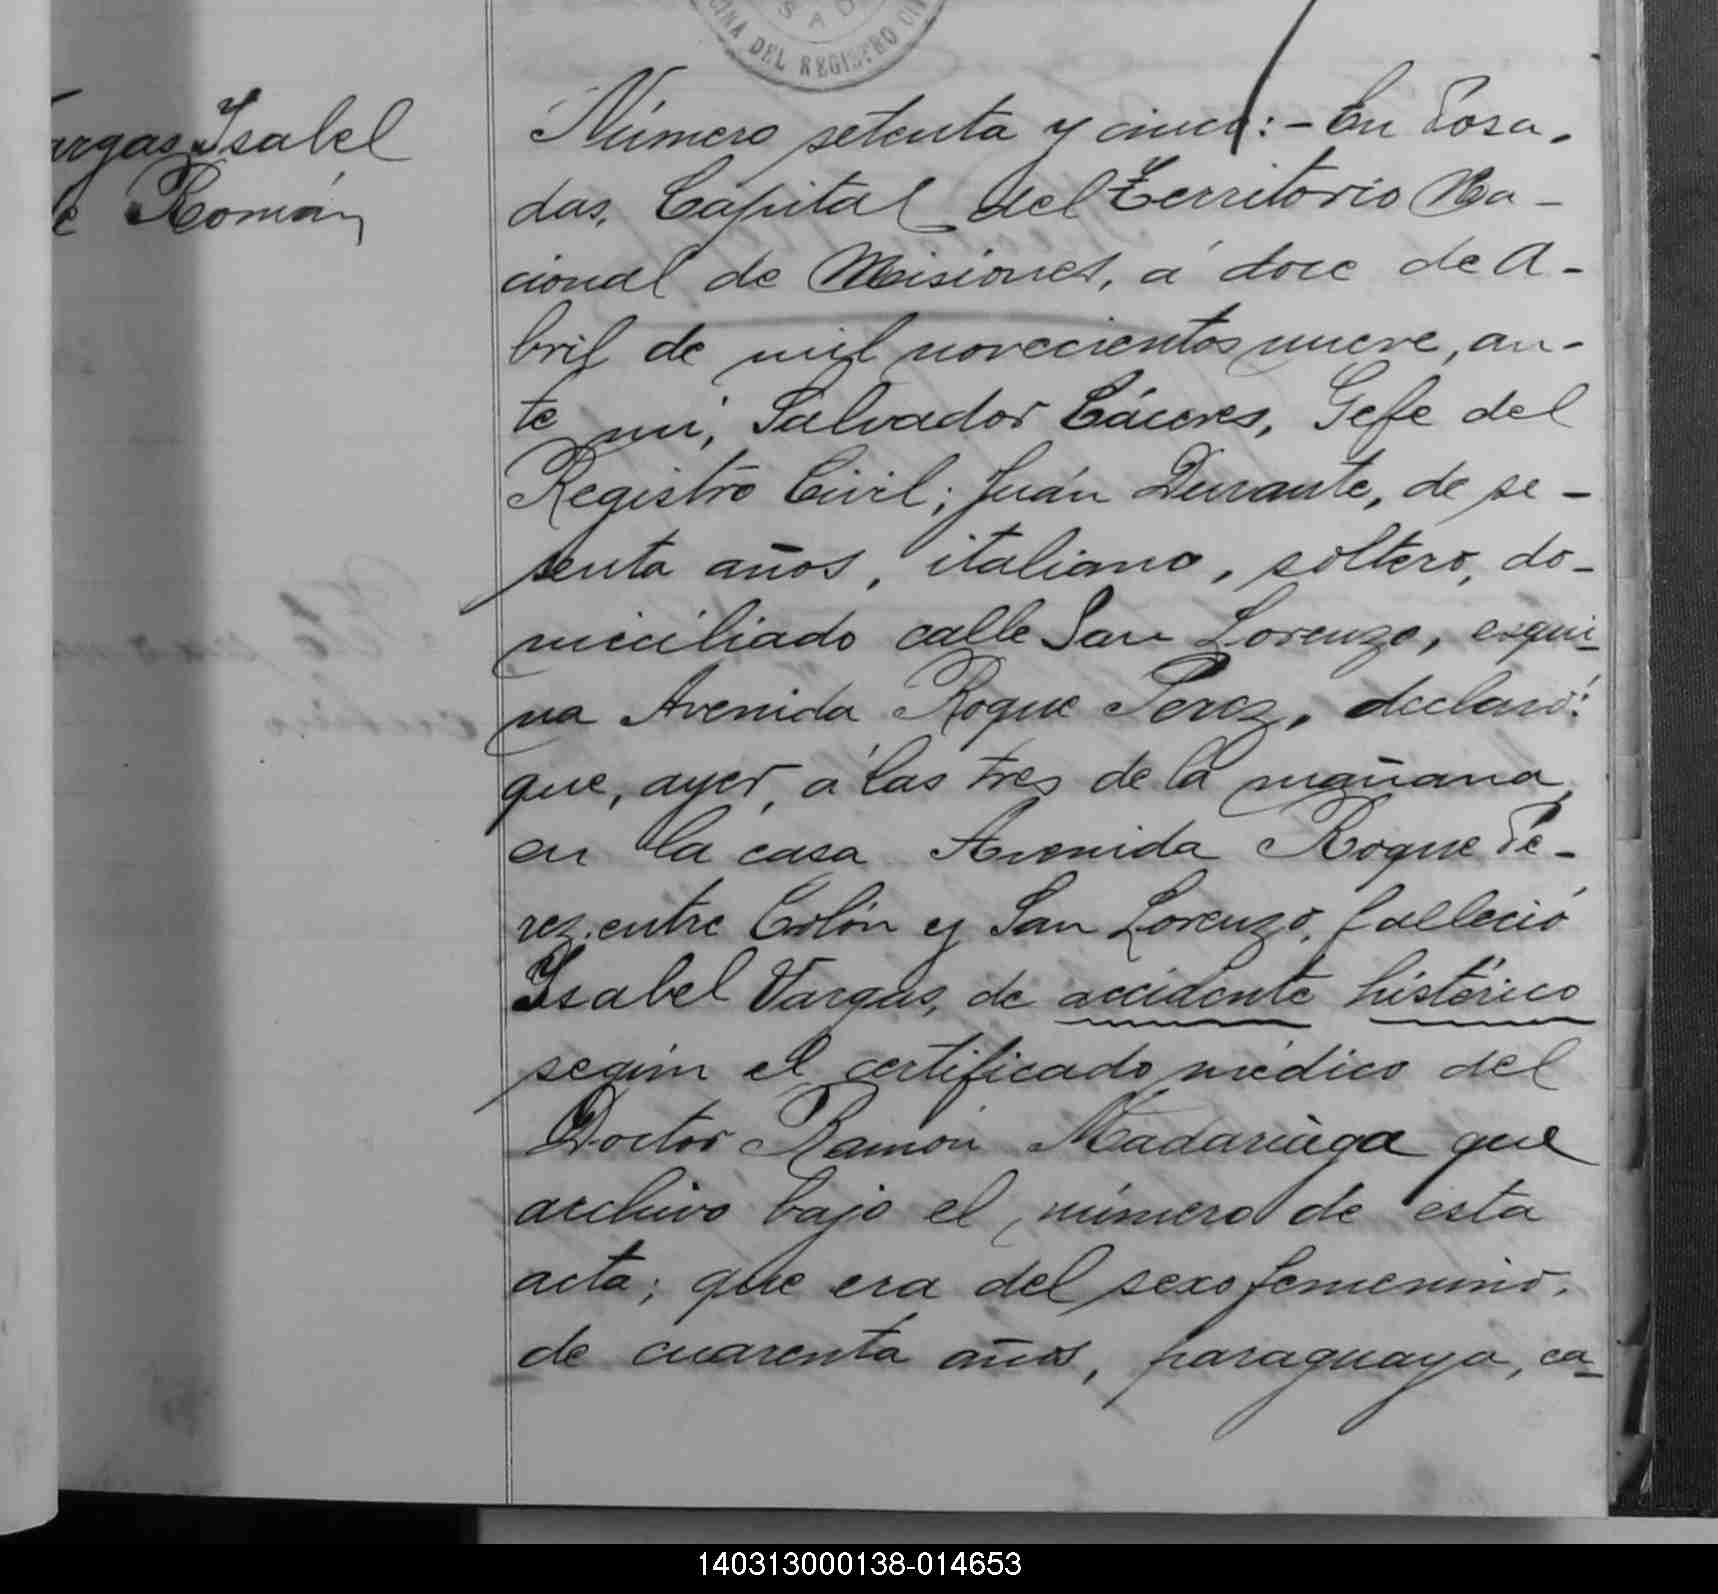 SAD
CINA DEL REGISTRO CIV
argas Isabel
e Román
Número setenta y cinco:- En Posa-
das, Capital del Territorio Na-
cional de Misiones, á doce de A-
bril de mil novecientos nueve, an-
te mi, Salvador Cáceres, Gefe del
Registro Civil; Juán Durante, de se-
senta años, italiano, soltero, do-
miciliado calle San Lorenzo, esqui-
na Avenida Roque Perez, declaró:
que, ayer, á las tres de la mañana,
en la casa Avenida Roque Pe-
rez, entre Colón y San Lorenzo, falleció
Isabel Vargas, de accidente histérico
según el certificado médico del
Doctor Ramón Madariaga que
archivo bajo el número de esta
acta; que era del sexo femenino,
de cuarenta años, paraguaya, ca-
140313000138-014653